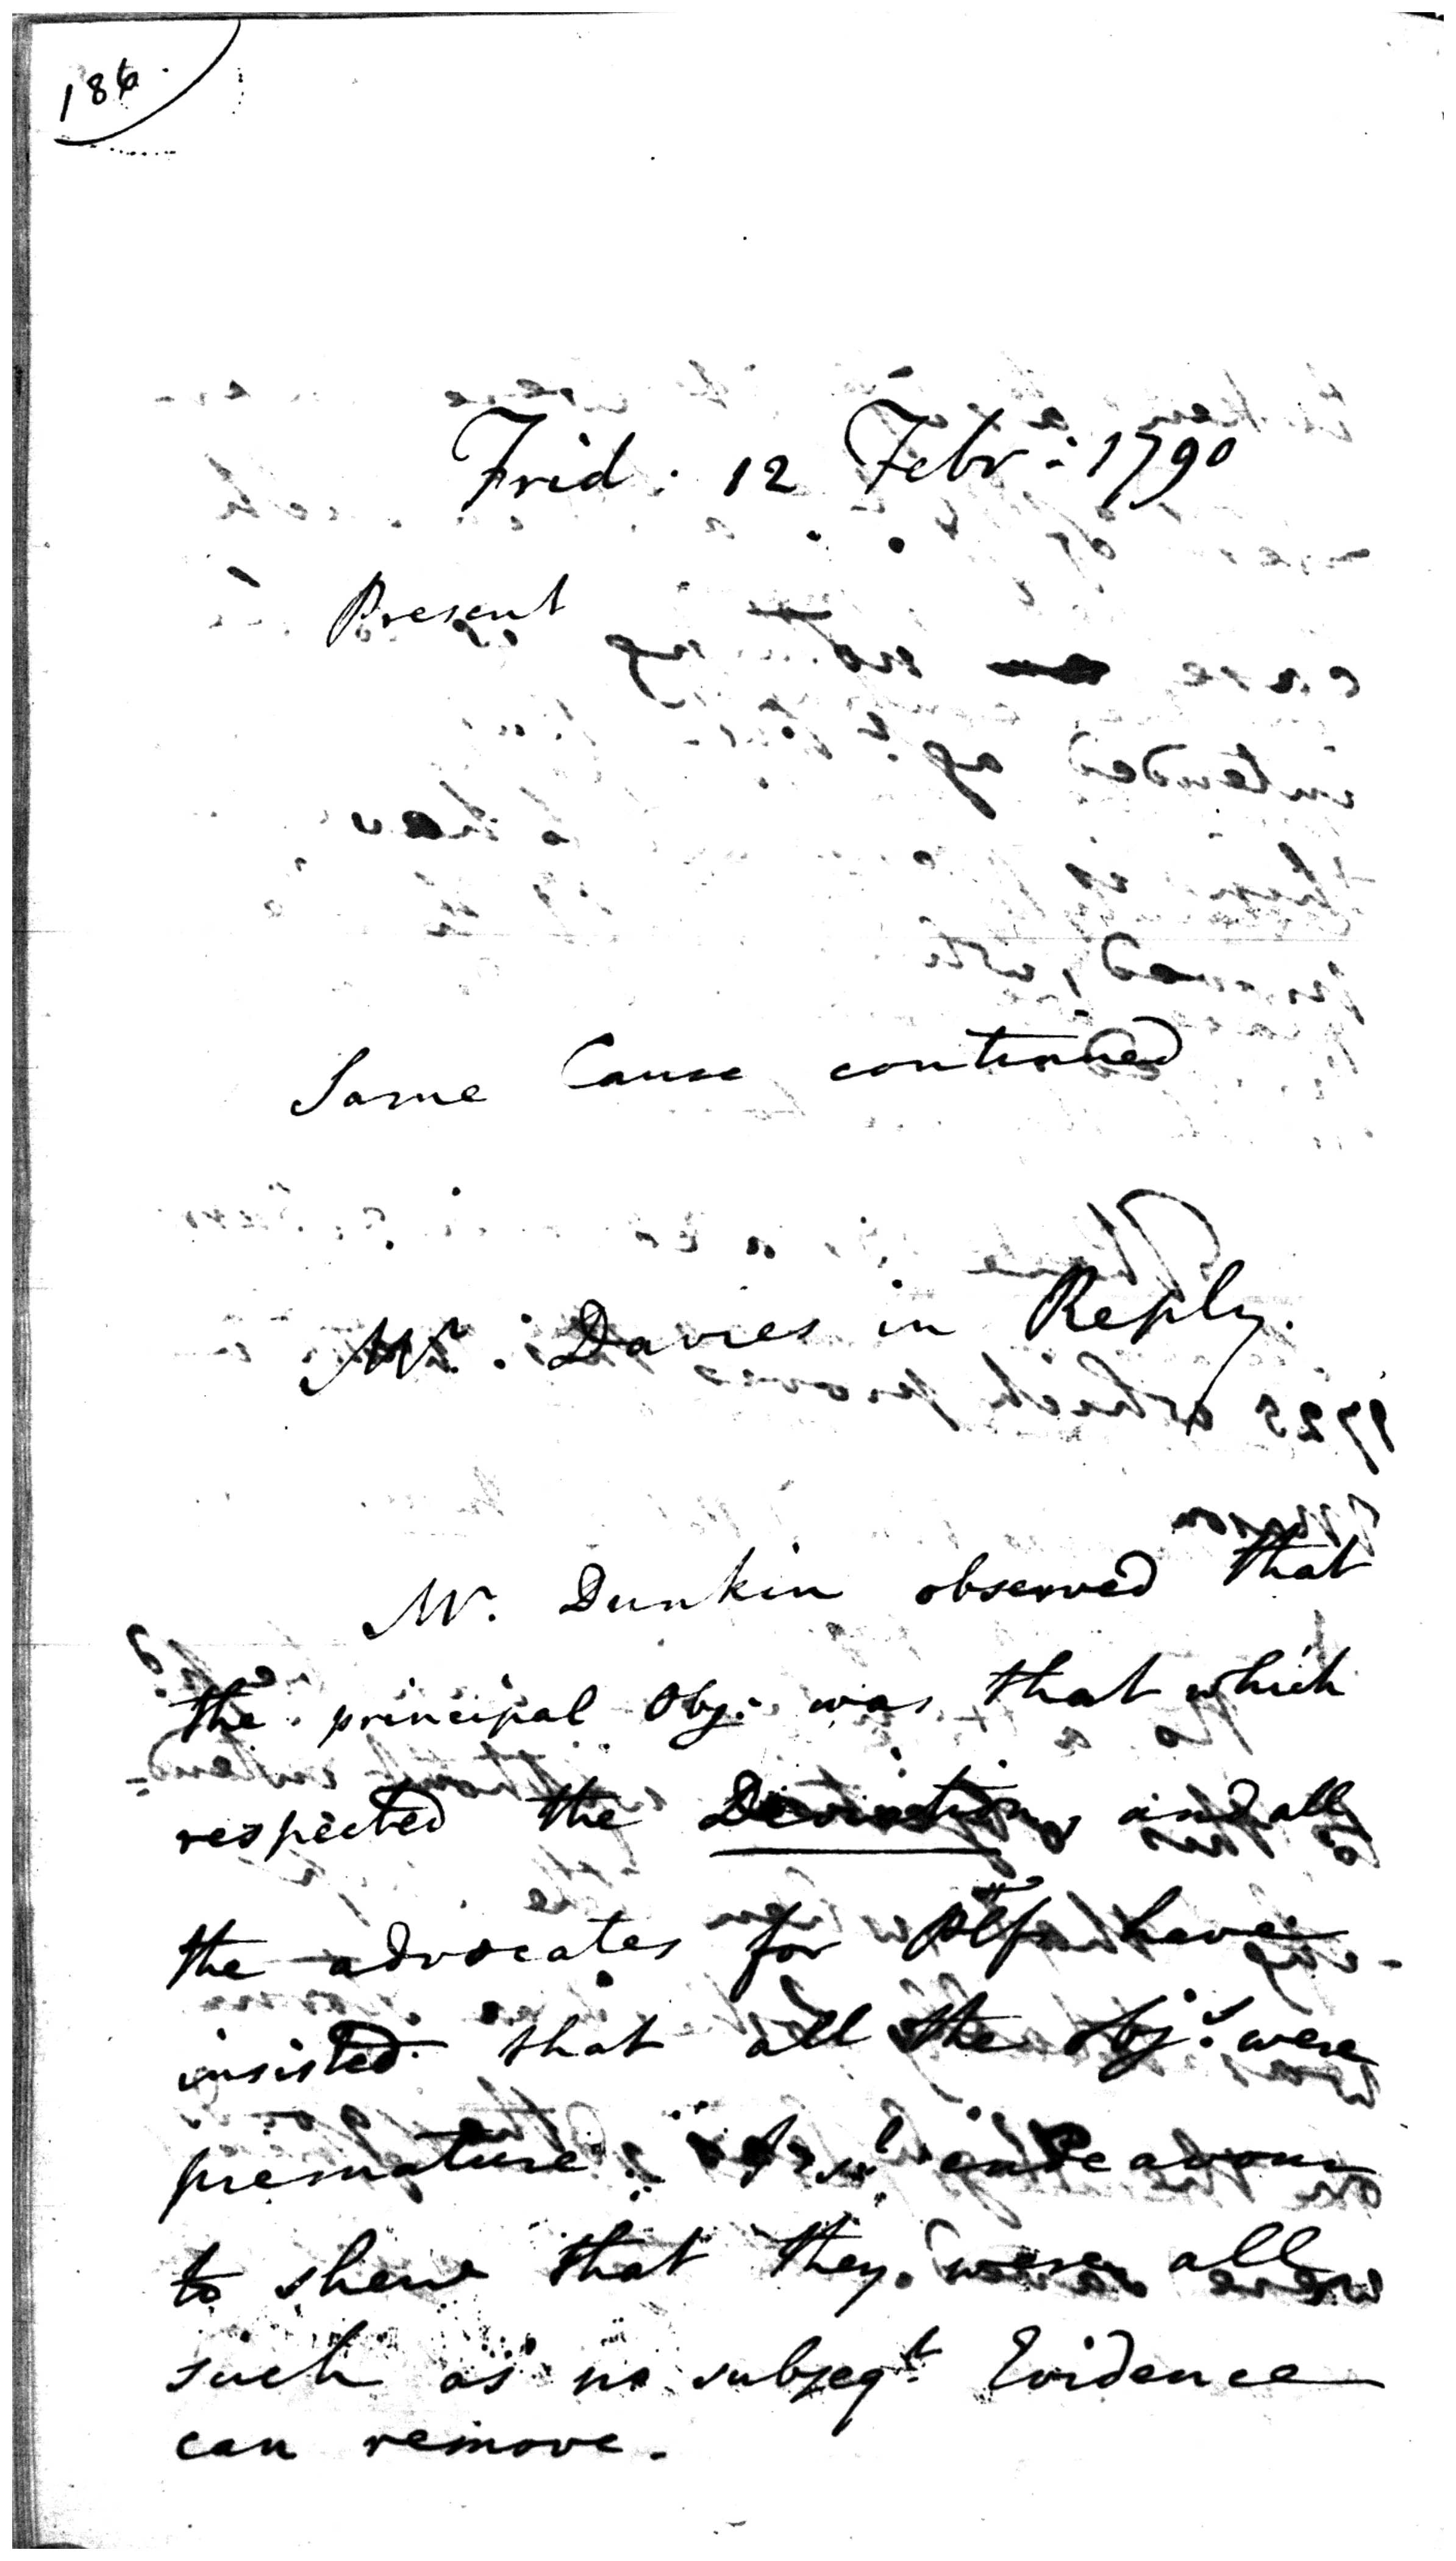 186.
Frid. 12 Febr: 1790
Present
Same Cause continued
Mr. Davies in Reply.
Mr. Dunkin observed that
the principal Obj: was that which
respected the Deviation, and all
the advocates for Plfs have
insisted that all the Obj:s were
premature. endeavour
to shew that they were all
such as no subseqt. Evidence
can remove.